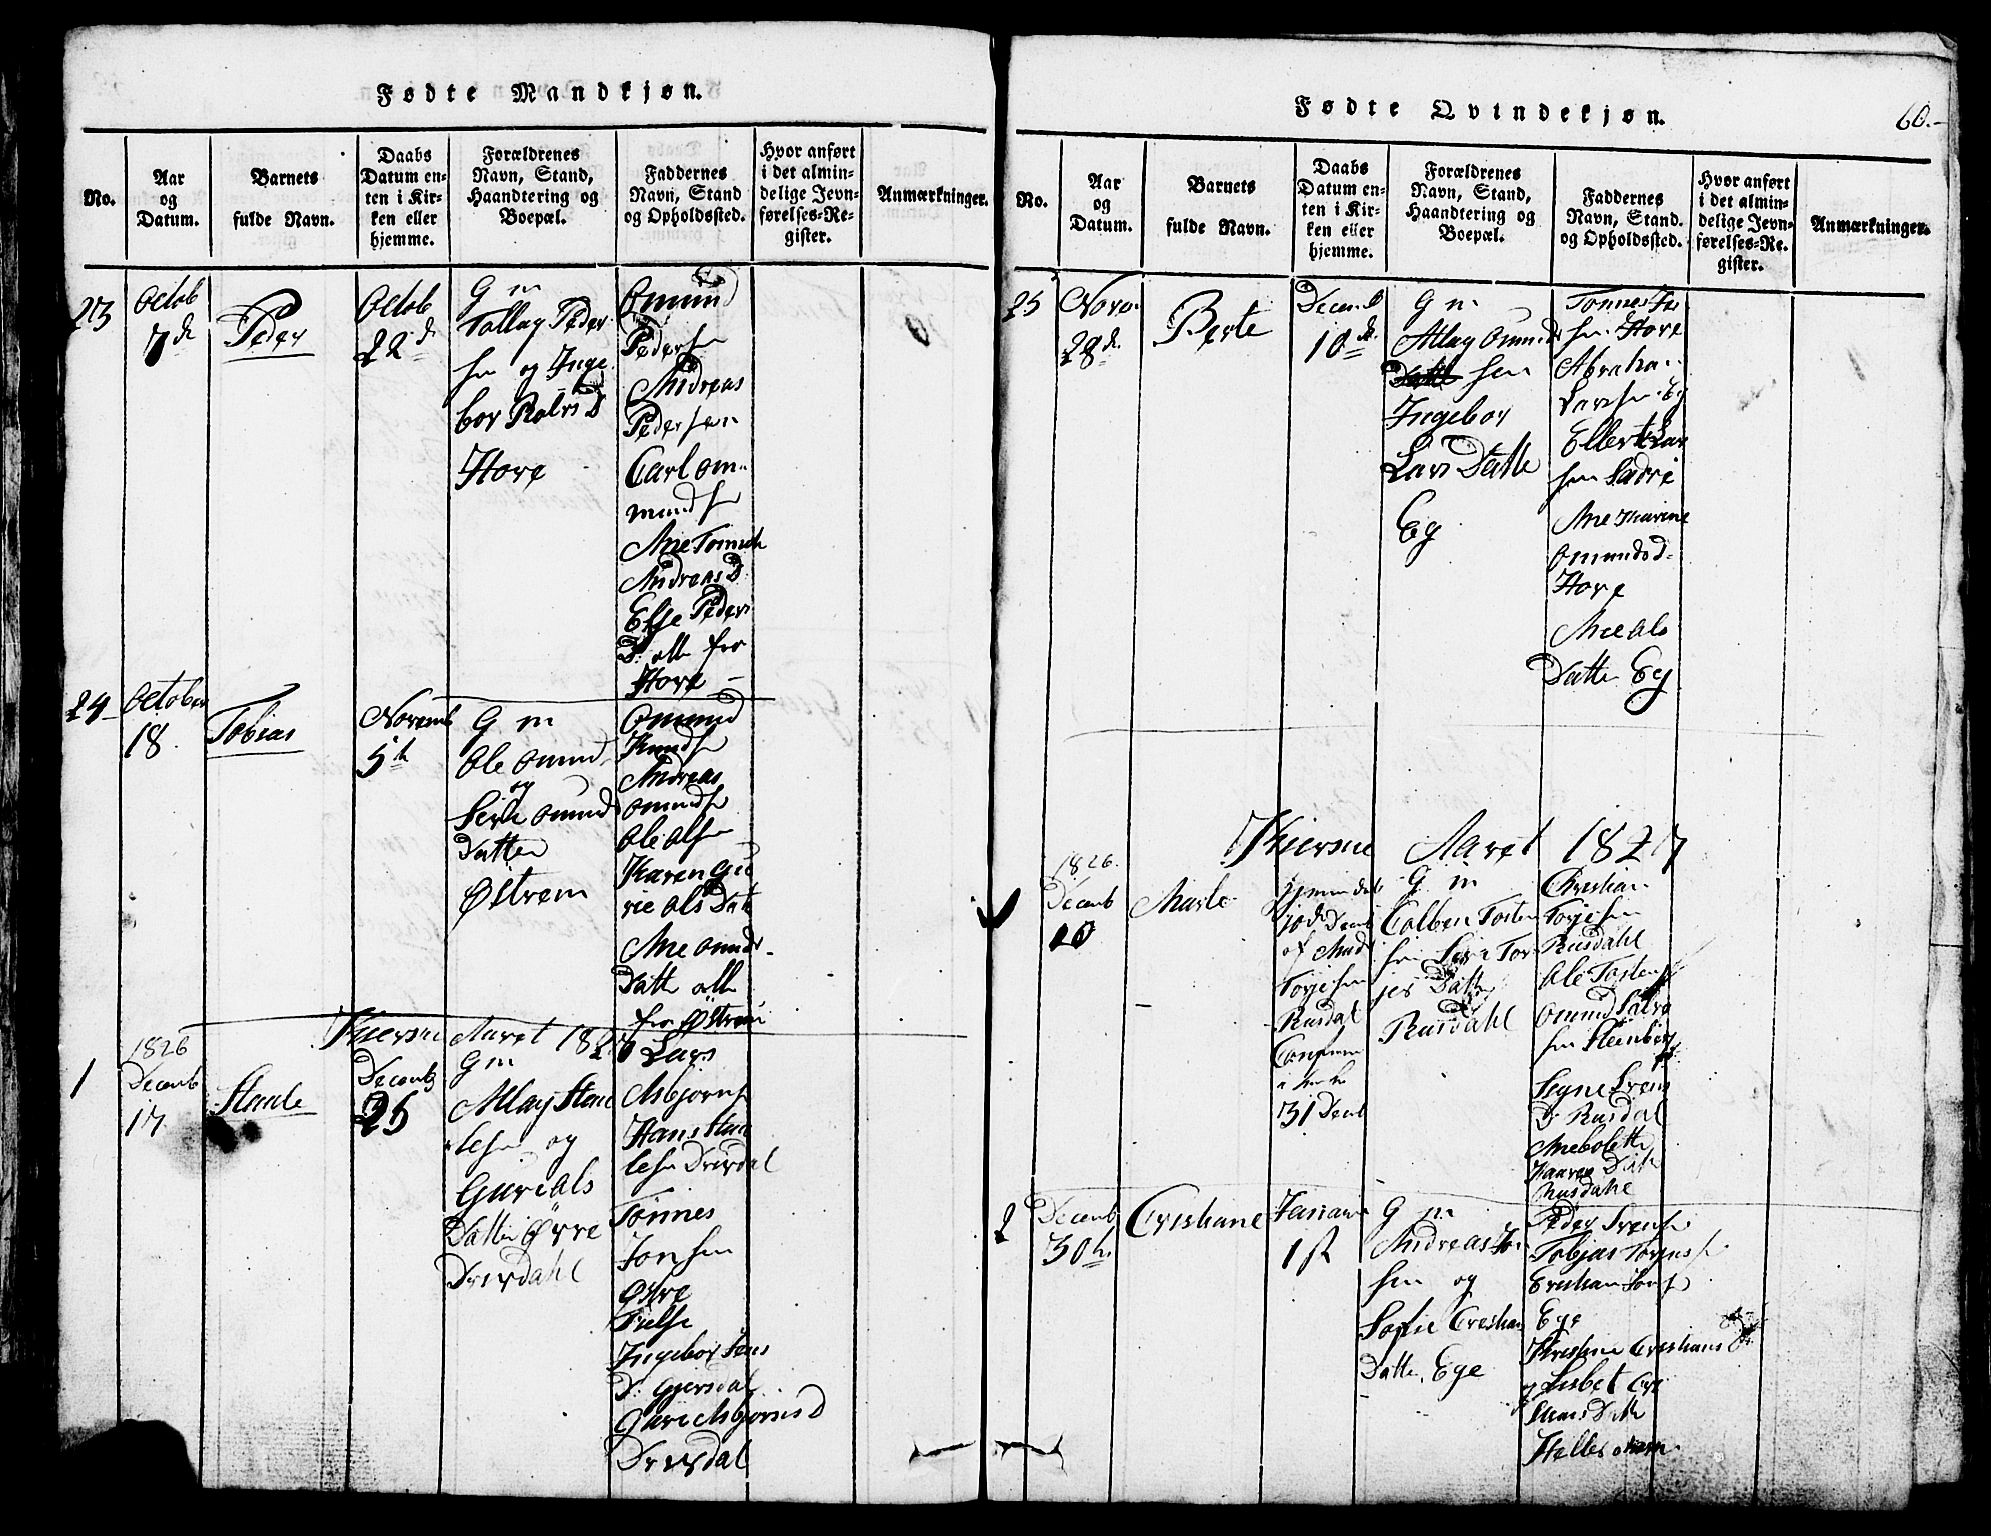 Fødte Mandkjøn.
No.
Aar
og
Datum.
Barnets
fulde Navn.
Daabs
Datum en-
ten i Kir-
ken eller
hjemme.
Forældrenes
Navn, Stand,
Haandtering og
Boepæl.
Faddernes
Navn, Stand
og Opholdssted.
Hvor anført
i det almin-
delige Jevn-
førelses-Re-
gister.
Anmærkninger.
23
Octob
7d
Peder
Octob
22d
G m
Tollag Peder
sen og Inge
bor Rolvs D
Hove
Omund
Pedersen
Andreas
Pedersen
Carl om
mundsen
Ane Tonnette
Andreas D
Else Peders
D: alle fra
Hove
24
October
18
Tobias
Novemb
5th
G m
Ole Omund
og
Siri Omund
Datter
Østrem
Omund
Knudsen
Andreas
omundsen
Ole Olsen
Karen Gu
rie Ols Datt
Ane Omunds
Datte alle
fra Østrem
Kiersne Aaret 1827
1
1826
Decemb
17
Staale
Decemb
26
G m
Allag Staa
lesen og
Guri Als
Datter Øvre
Drivdahl
Lars
Asbjørns
Hans Staa
lesen Drivdal
Tønnes
Jonsen
Ostre
Ingebor Jens
D: Gjersdal
Guri Asbjørns D
Drivdal
Fødte Qvindekjøn.
60.
No.
Aar
og
Datum.
Barnets
fulde Navn.
Daabs
Datum en-
ten i Kir-
ken eller
hjemme.
Forældrenes
Navn, Stand,
Haandtering og
Boepæl.
Faddernes
Navn, Stand.
og Opholdssted.
Hvor anført
i det almin-
delige Jevn-
førelses-Re-
gister.
Anmærkninger.
25
Novem
28d.
Berte
Decemb
10d
G m
Atlag Omund
Datte sen
Ingebor
Lars Datte
Eg
Tonnes
sen Hove
Abraham
Larssen Eg
Ellert Lar
sen Sadre
Ane Karine
omunds d
Hove
Ane Ols
Datte Eg
Kiersne Aaret 1827
1826.
Decemb
10
Marte
hjemme døbt
10d Decemb
af Aud
Torjesen
Rusdal
31 Decemb
G m
Colben Tosten
sen Siri Tor
jes Datter
Rusdahl
Christian
Torjesen
Rusdahl
Ole Tosten
Omund Salve
sen Steinberg
Signe Svens
D: Rusdal
Ane bolette
Datte
Rusdahl
2
Decemb
30te
Cristiane
Januar
1st
G m
Andreas Jon
sen og
Sofie Cristian
Datter Ege
Peder Svensen
Tobias Torjus
Cristian Jons
Ege
Kristine Cristians D
og Lisbet Cri
stians Datte